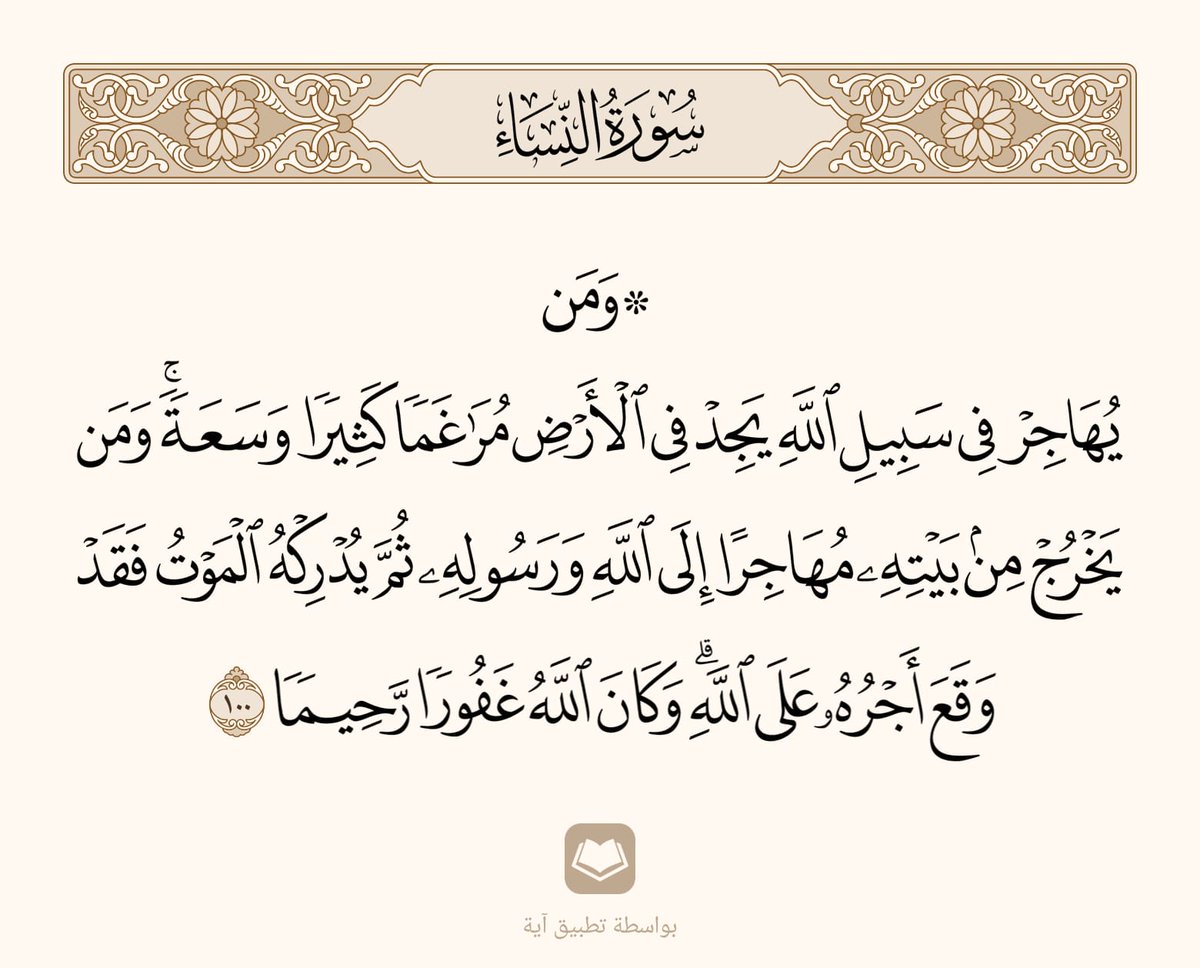 سُورَةُ النِّسَاءِ
۞ وَمَن
يُهَاجِرۡ فِي سَبِيلِ ٱللَّهِ يَجِدۡ فِي ٱلۡأَرۡضِ مُرَٰغَمٗا كَثِيرٗا وَسَعَةٗۚ وَمَن
يَخۡرُجۡ مِنۢ بَيۡتِهِۦ مُهَاجِرًا إِلَى ٱللَّهِ وَرَسُولِهِۦ ثُمَّ يُدۡرِكۡهُ ٱلۡمَوۡتُ فَقَدۡ
وَقَعَ أَجۡرُهُۥ عَلَى ٱللَّهِۗ وَكَانَ ٱللَّهُ غَفُورٗا رَّحِيمٗا ١٠٠
بواسطة تطبيق آية